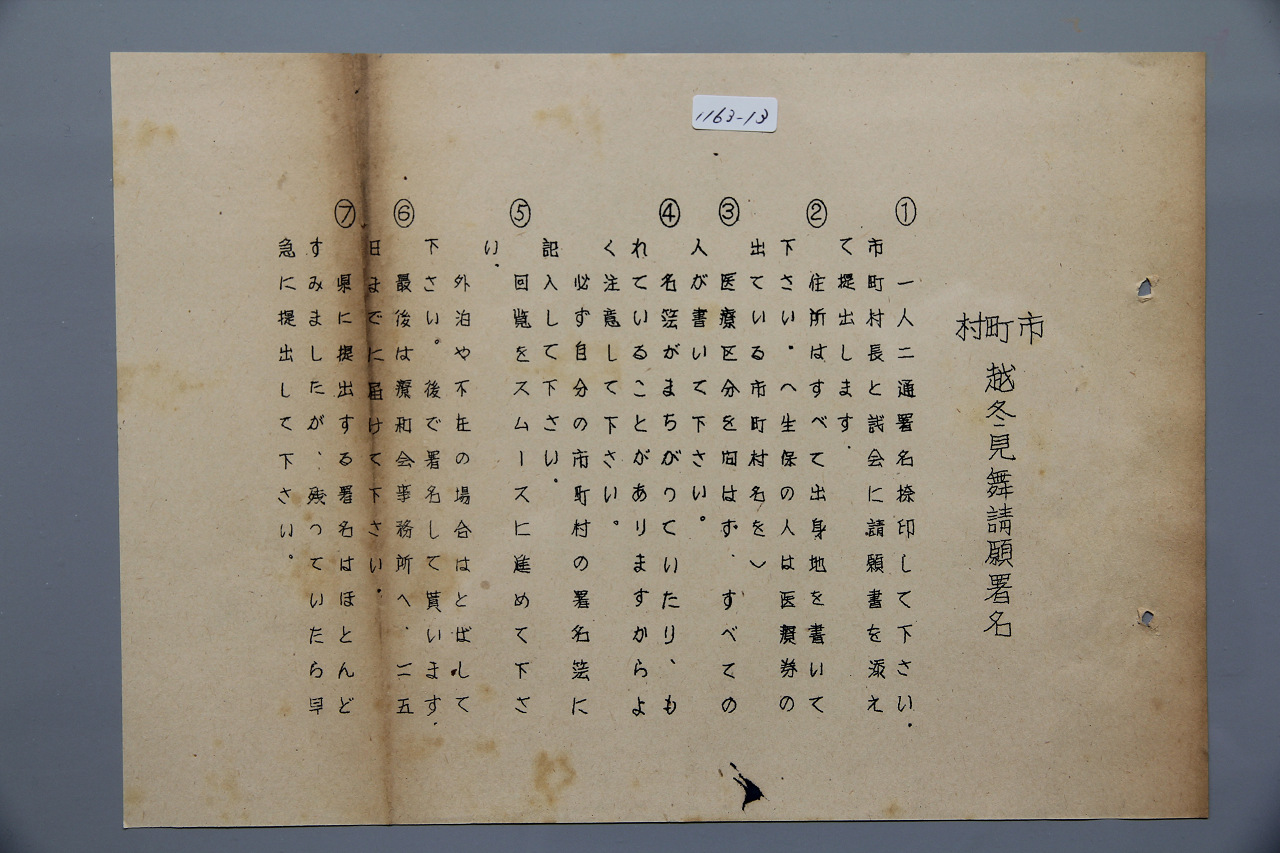 1163-13
市町村
越冬見舞請願署名
① 一人二通署名捺印して下さい.
市町村長と議会に請願書を添え
て提出します.
② 住所はすべて出身地を書いて
下さい.(生保の人は医療券の
出ている市町村名を)
③ 医療区分を問はず、すべての
人が書いて下さい。
④ 名簿がまちがっていたり、も
れていることがありますからよ
く注意して下さい。
必ず自分の市町村の署名簿に
記入して下さい。
⑤ 回覧をスムースに進めて下さ
い.
外泊や不在の場合はとばして
下さい。後で署名して貰います.
⑥ 最後は療和会事務所へ、二五
日までに届けて下さい.
⑦ 県に提出する署名はほとんど
すみましたが、残っていたら早
急に提出して下さい。